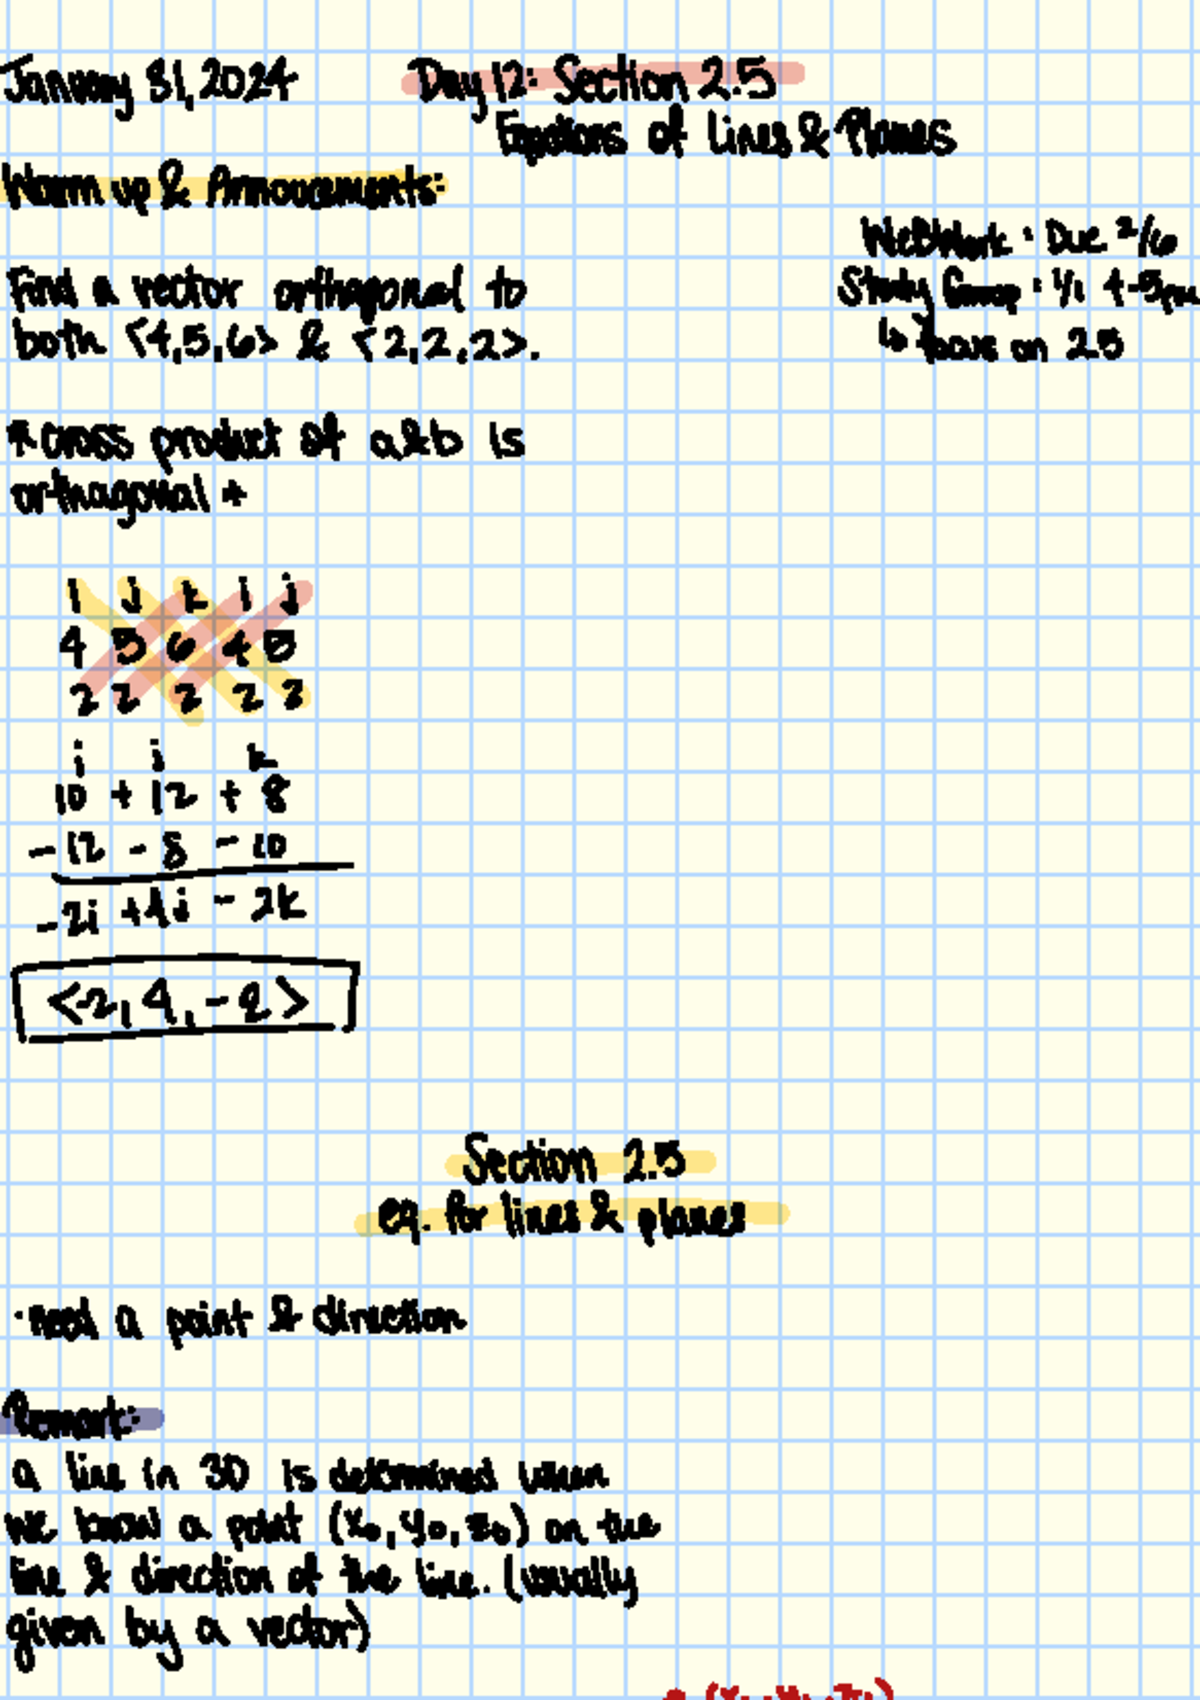 January 31, 2024
Day 12: Section 2.5
Equations of lines & Planes
Warm up & Annoucements:
WeBWork : Due 2/6
Study Group : 1/1 4-5pm
↳ focus on 2.5
Find a vector orthagonal to
both <4,5,6> & <2,2,2>.
*cross product of a&b is
orthagonal +
i j k i j
4 5 6 4 5
2 2 2 2 2
i j k
10 + 12 + 8
-12 - 8 - 10
-2i +4j - 2k
<-2, 4, -2>
Section 2.5
eq. for lines & planes
·need a point & direction
Remark:
a line in 3D is determined when
we know a point (x₀, y₀, z₀) on the
line & direction of the line. (usually
given by a vector)